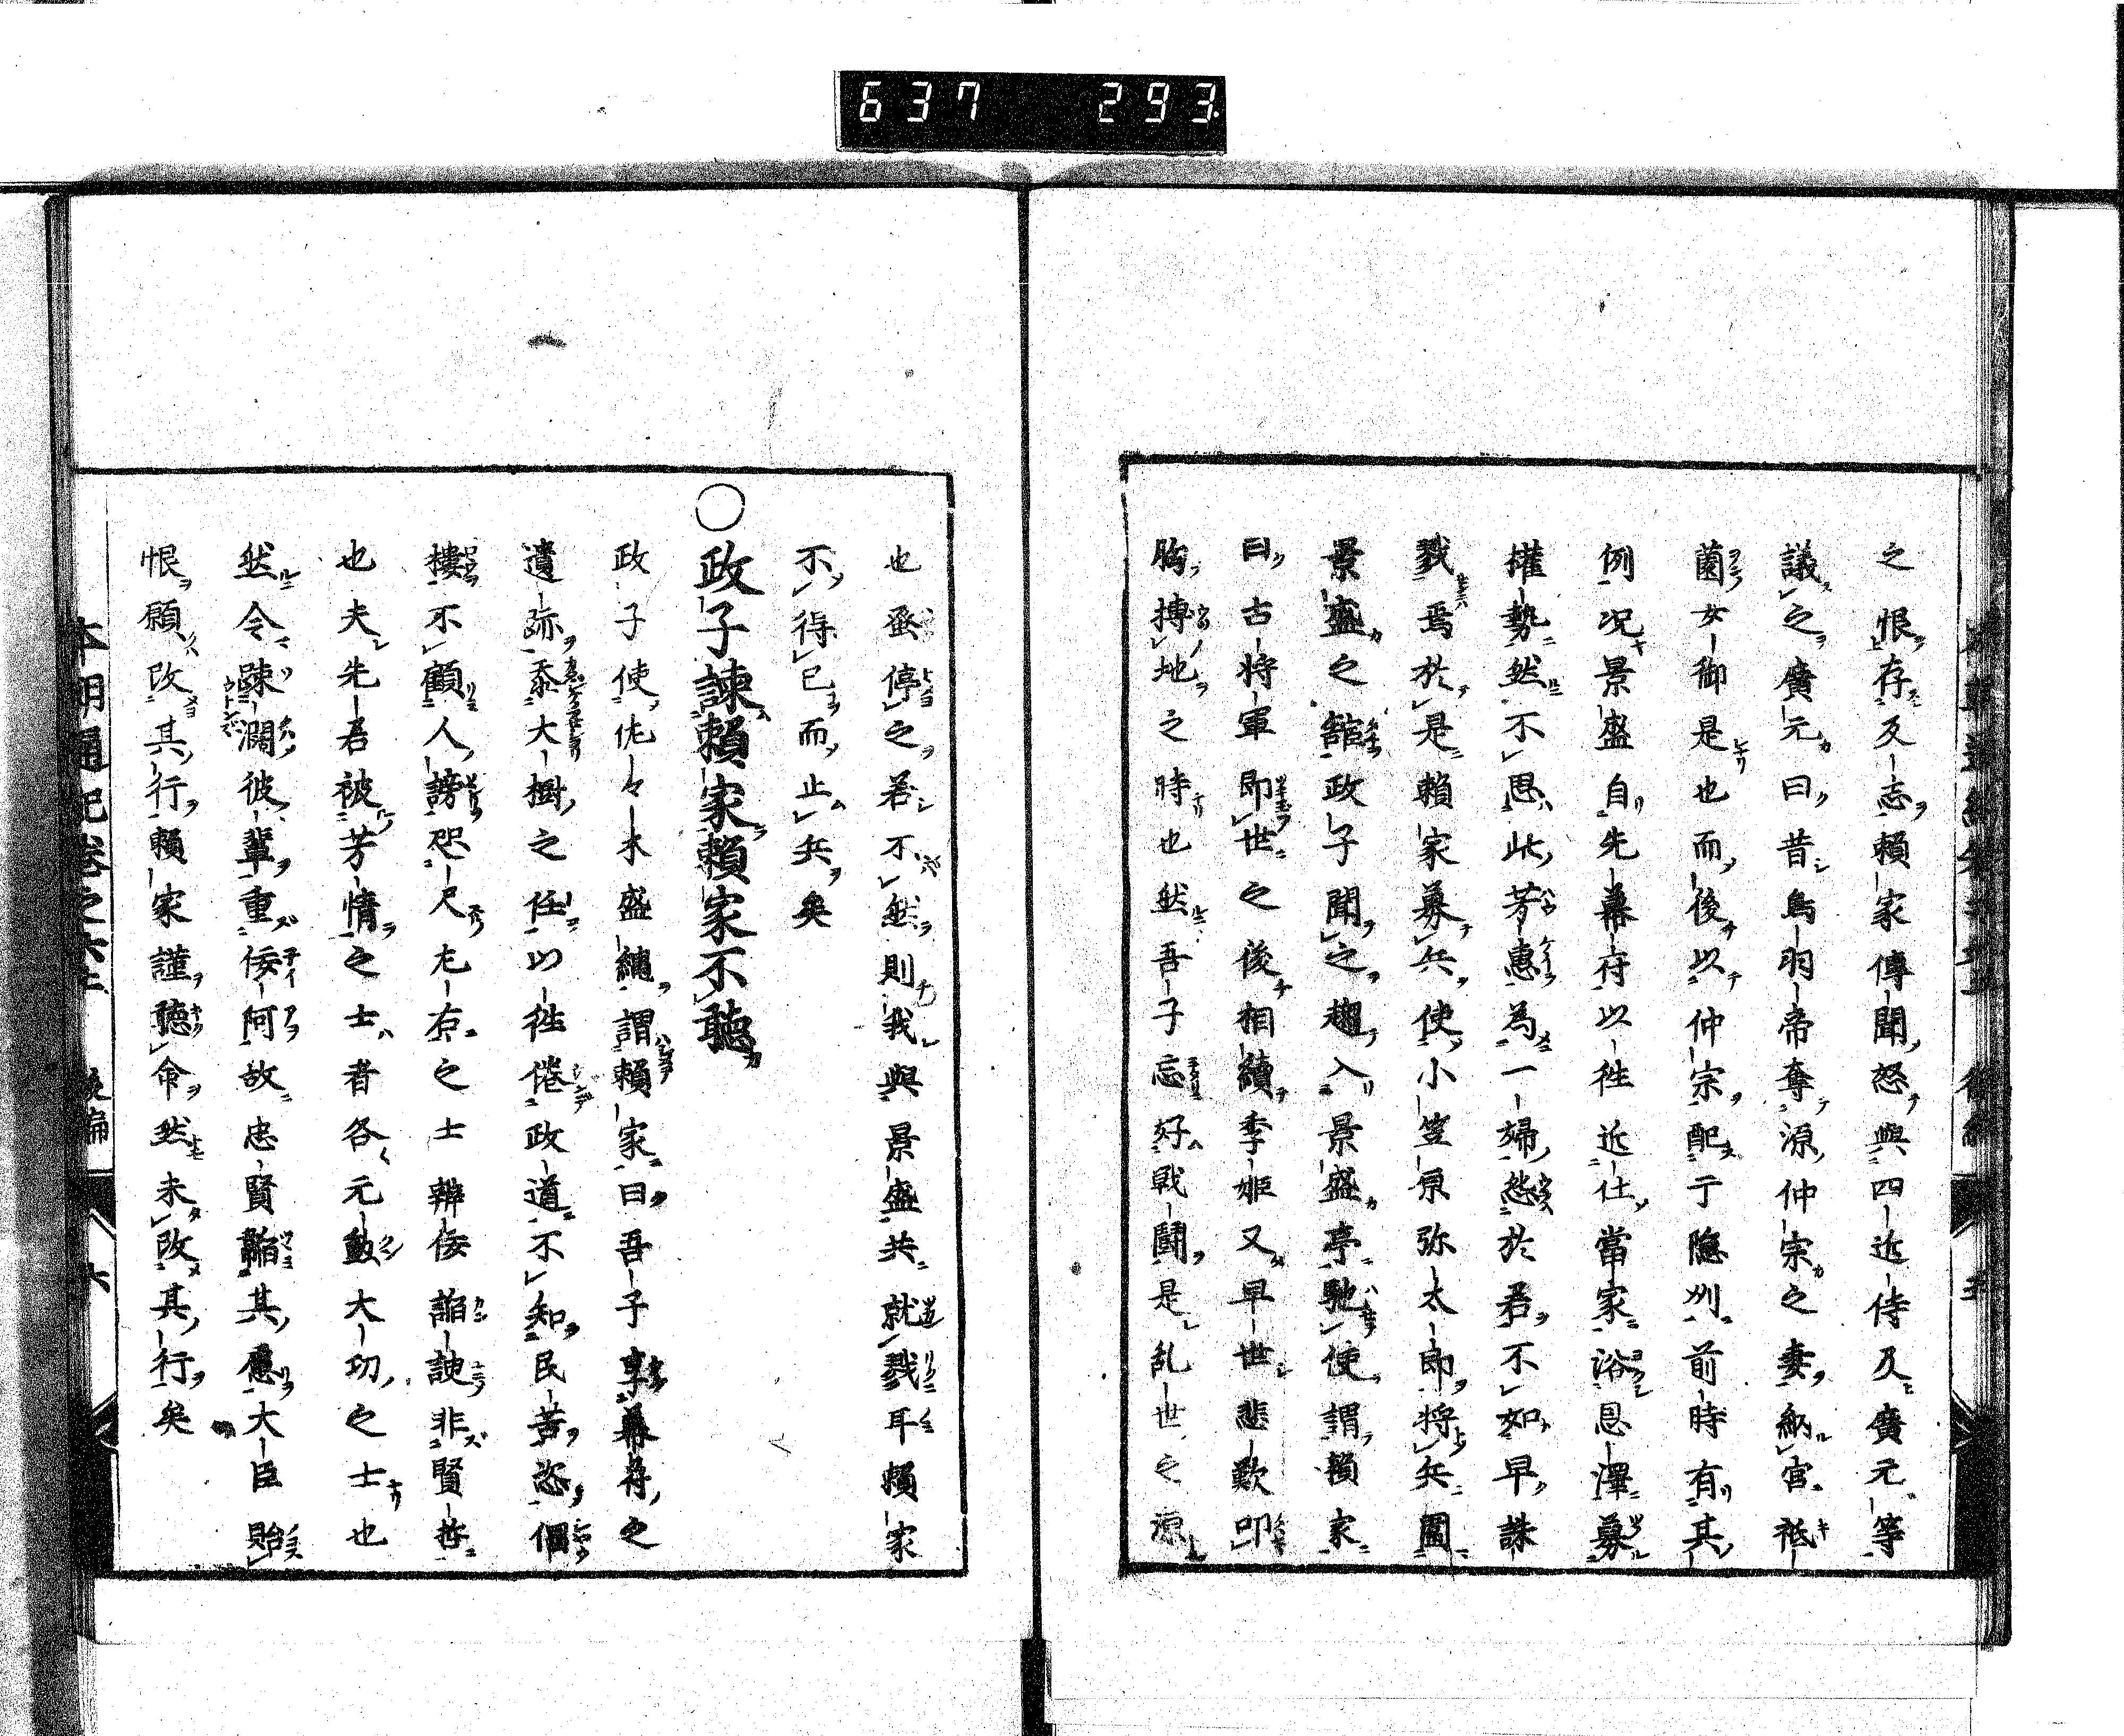 637 293
之恨存反志賴家傳聞怒與四近侍及廣元等
議之廣元曰昔鳥羽帝奪源仲宗之妻納宮祗
園女御是也而後以仲宗配于隱州前時有其
例况景盛自先幕府以徃近仕當家浴恩澤募
權勢然不思此芳惠為一婦愁於君不如早誅
戮焉於是賴家募兵使小笠原弥太郎將兵圍
景盛之舘政子聞之趨入景盛亭馳使謂賴家
曰古將軍即世之後相續季姬又早世悲歎叩
胸搏地之時也然吾子忘好戰鬪是乱世之源
也蚤停之若不然則我與景盛共就戮耳賴家
不得已而止兵矣
○政子諫賴家賴家不聽
政子使佐々木盛綱謂賴家曰吾子享幕府之
遺跡忝大樹之任以徃倦政道不知民苦恣個
樓不顧人謗咫尺左右之士辨佞諂諛非賢哲
也夫先君被芳情之士者各元勳大功之士也
然令踈濶彼輩重佞阿故忠賢韜其慮大臣貽
恨願改其行賴家謹聽命然未改其行矣
本朝通紀卷之六上 後編 六